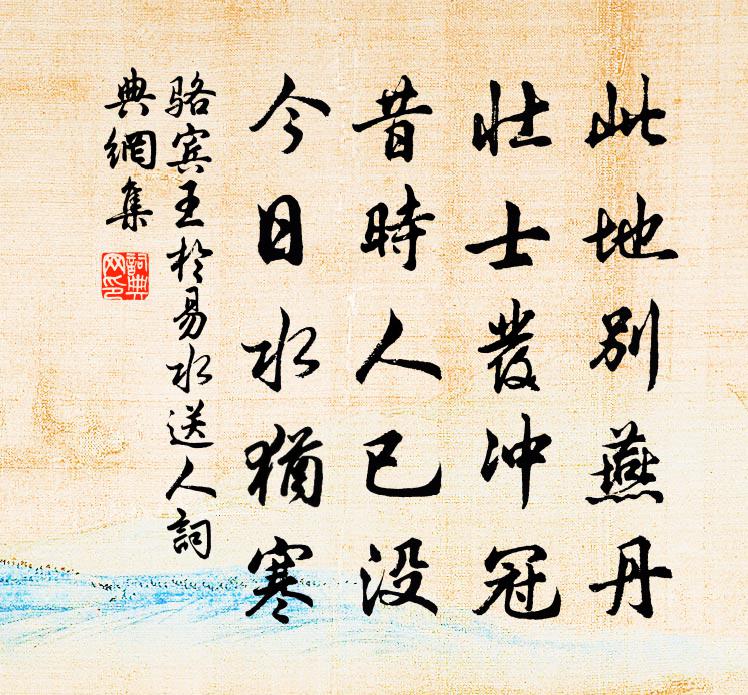 此地別燕丹
壮士發冲冠
昔時人已没
今日水猶寒
骆宾王於易水送人詞
典網集
詞典
网印